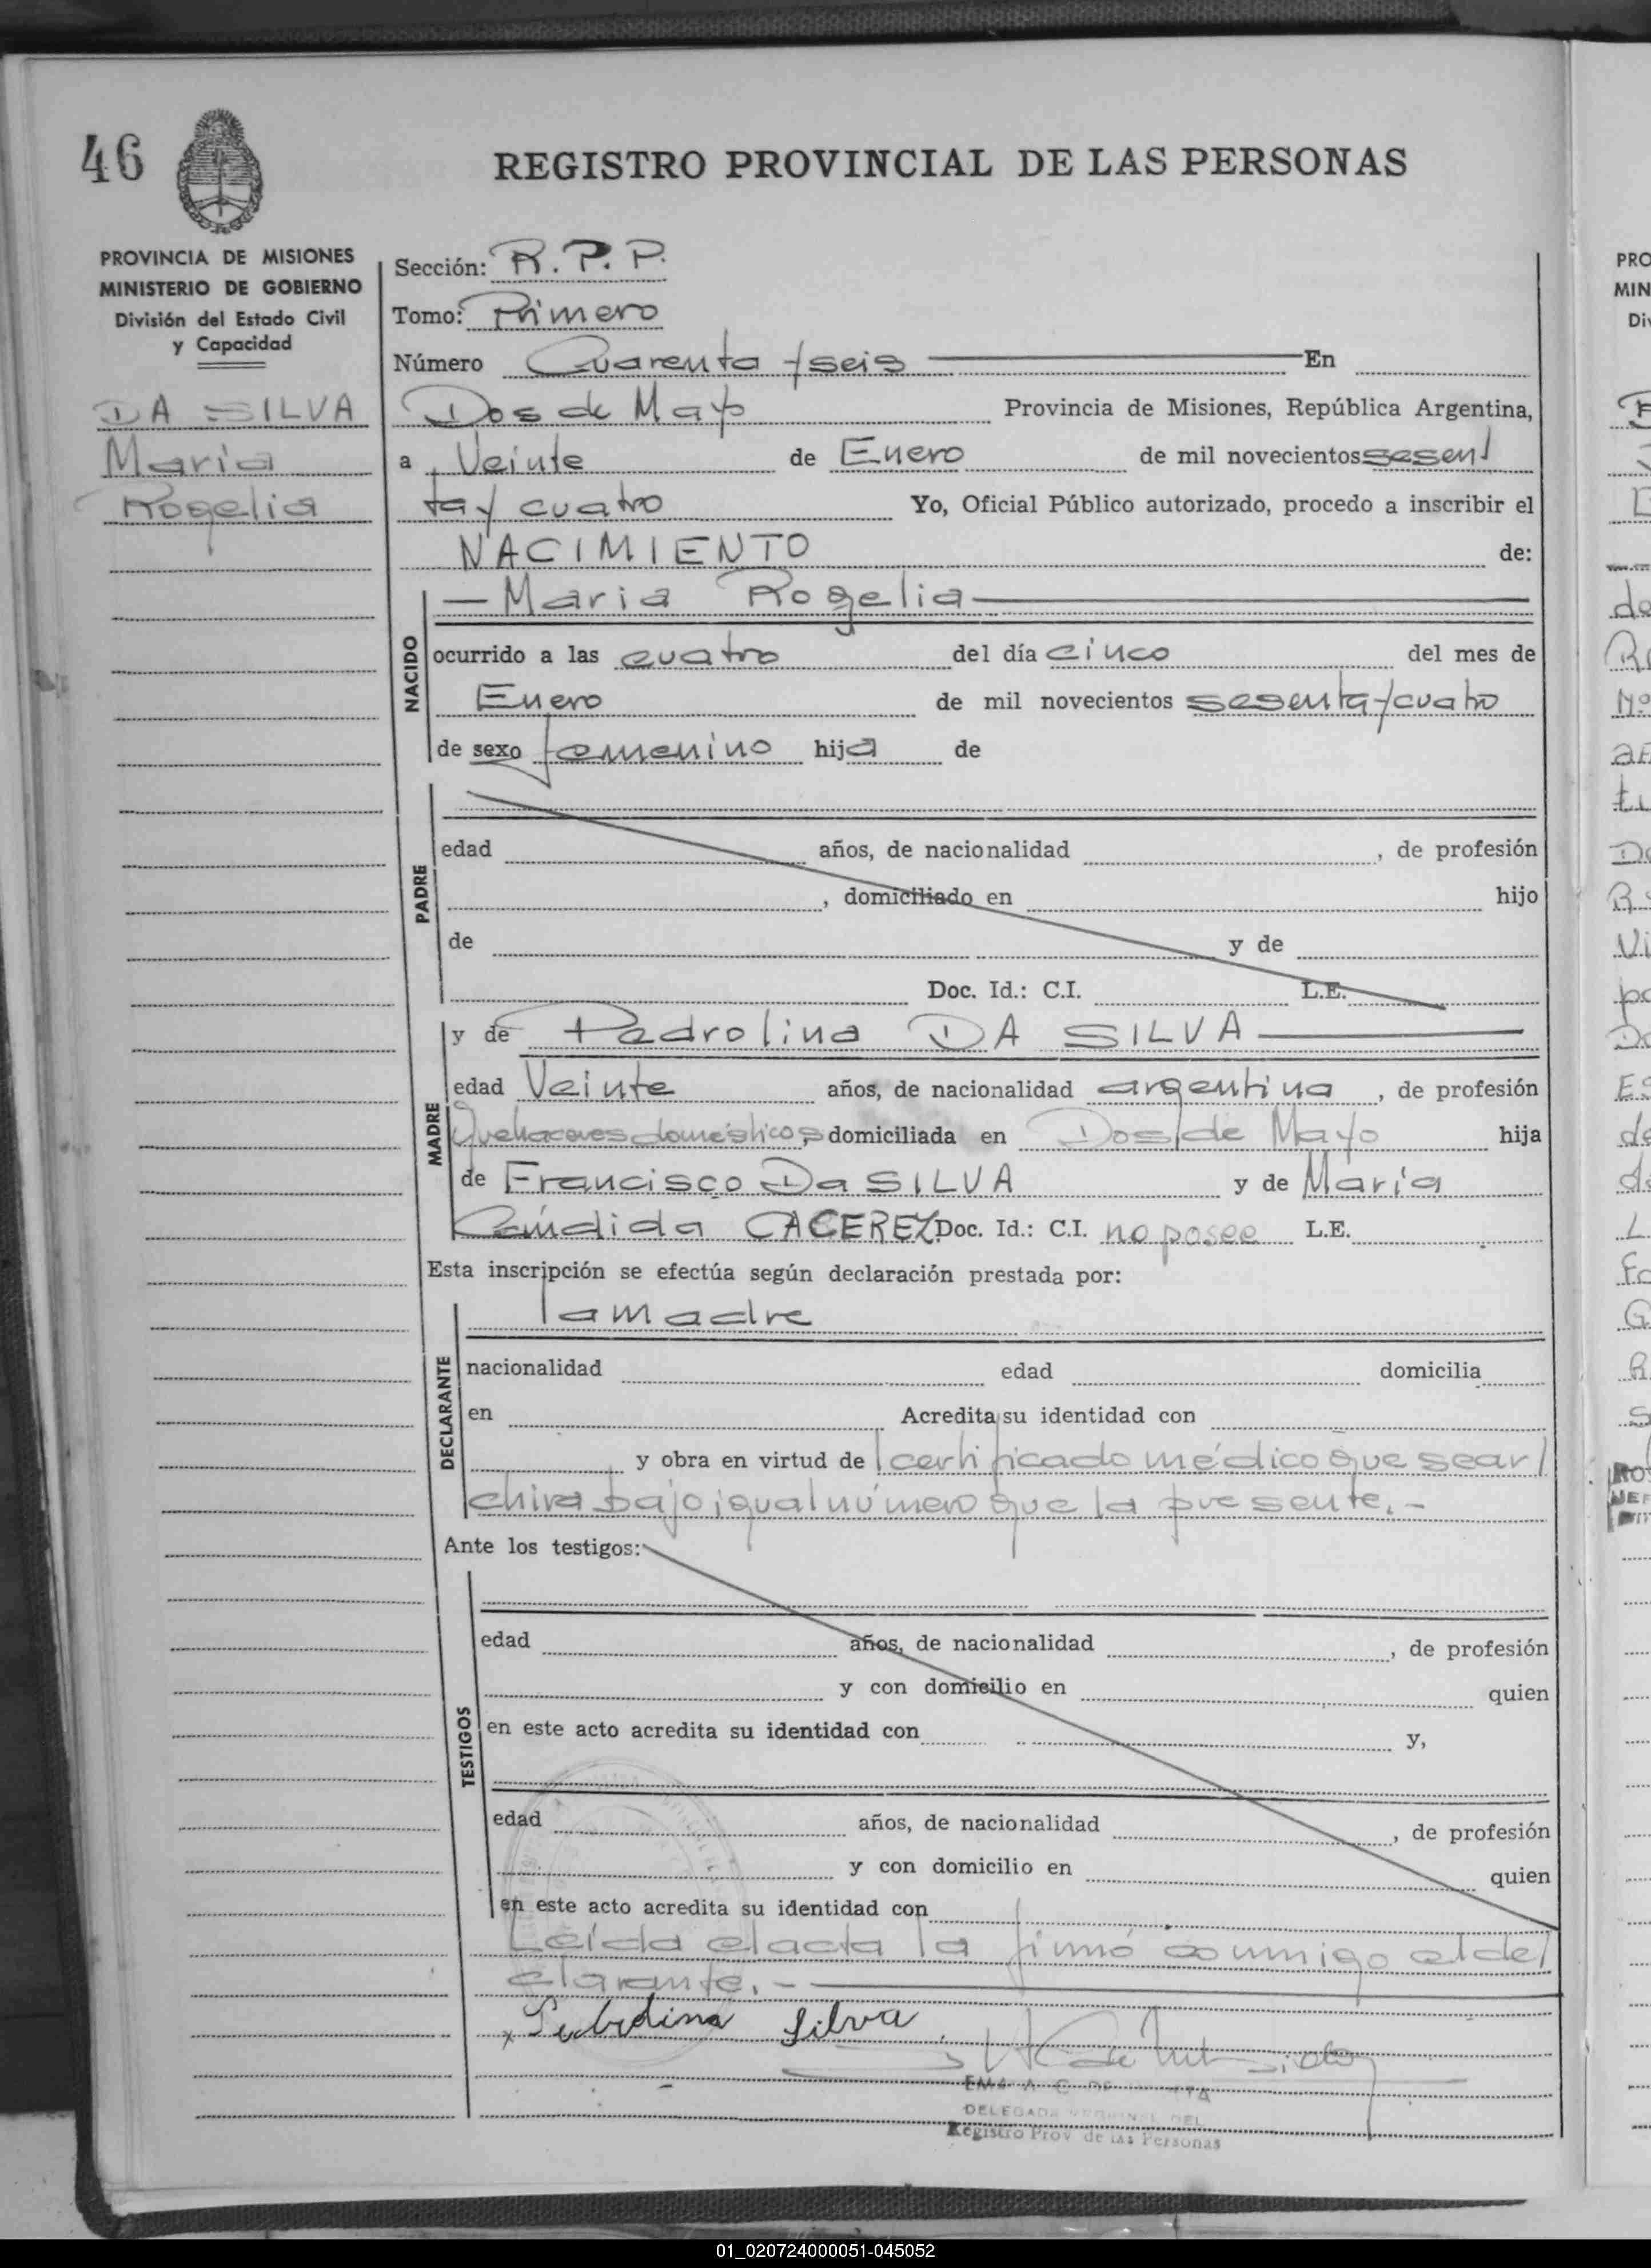 46
REGISTRO PROVINCIAL DE LAS PERSONAS
PROVINCIA DE MISIONES
MINISTERIO DE GOBIERNO
División del Estado Civil
y Capacidad
DA SILVA
Maria
Rogelia
Sección: R. P. P.
Tomo: Primero
Número Cuarenta y seis En
Dos de Mayo Provincia de Misiones, República Argentina,
a Veinte de Enero de mil novecientos sesen/
ta y cuatro Yo, Oficial Público autorizado, procedo a inscribir el
NACIMIENTO de:
NACIDO
— Maria Rogelia —
ocurrido a las cuatro del día cinco del mes de
Enero de mil novecientos sesenta y cuatro
de sexo femenino hija de
PADRE
edad años, de nacionalidad , de profesión
, domiciliado en hijo
de y de
Doc. Id.: C.I. L.E.
MADRE
y de Pedrolina DA SILVA —
edad Veinte años, de nacionalidad argentina, de profesión
Quehaceres domésticos, domiciliada en Dos de Mayo hija
de Francisco Da SILVA y de María
Cándida CACEREZ Doc. Id.: C.I. no posee L.E.
Esta inscripción se efectúa según declaración prestada por:
DECLARANTE
la madre
nacionalidad edad domicilia
en Acredita su identidad con
y obra en virtud de certificado médico que se ar/
chiva bajo igual número que la presente.-
Ante los testigos:
TESTIGOS
edad años, de nacionalidad , de profesión
y con domicilio en quien
en este acto acredita su identidad con y,
edad años, de nacionalidad , de profesión
y con domicilio en quien
en este acto acredita su identidad con
Leída el acta la firmó conmigo el de/
clarante.-
x Silva
EMA A. C. DE
DELEGADA REGIONAL DEL
Registro Prov de las Personas
PRO
MIN
01_020724000051-045052